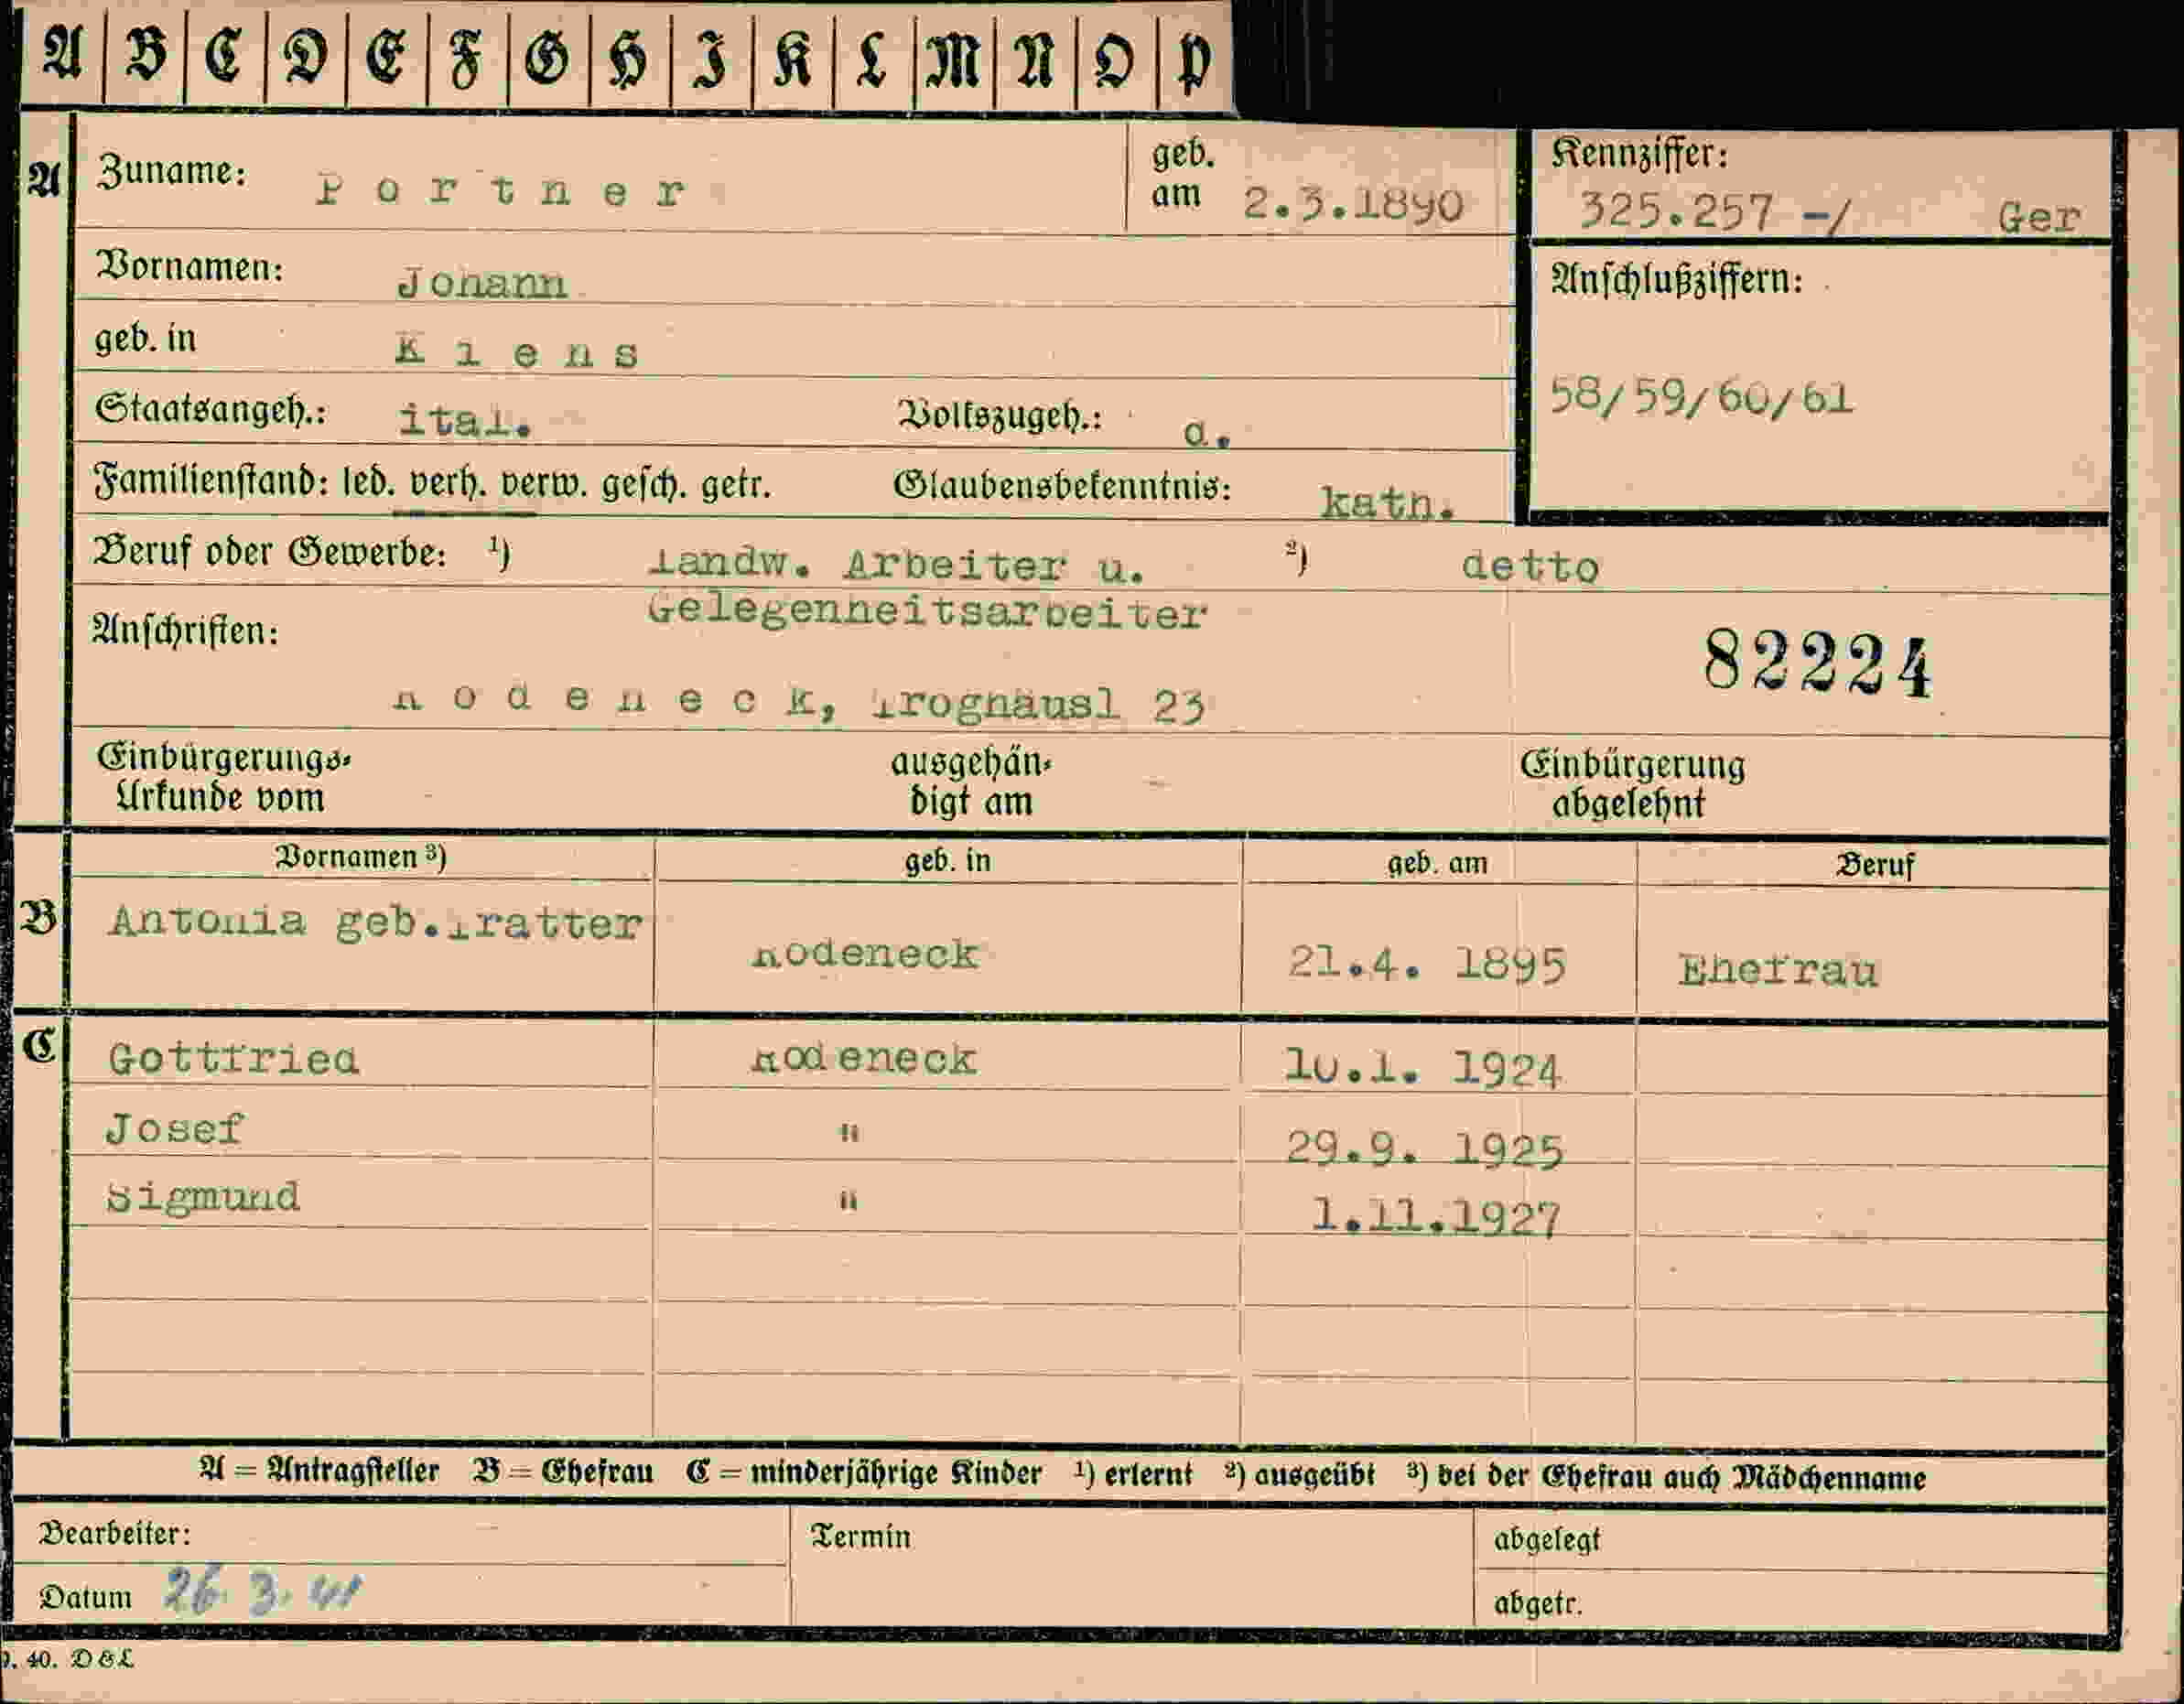 A B C D E F G H I K L M N O P
A Zuname: Portner geb. am 2.3.1890 Kennziffer: 325.257 -/ Ger
Vornamen: Johann Anschlußziffern:
geb. in Kiens
Staatsangeh.: ital. Volkszugeh.: d. 58/59/60/61
Familienstand: led. verh. verw. gesch. getr. Glaubensbekenntnis: kath.
Beruf oder Gewerbe: 1) Landw. Arbeiter u. 2) detto
Gelegenheitsarbeiter
Anschriften: 82224
Rodeneck, 23
Einbürgerungs- ausgehän- Einbürgerung
Urkunde vom digt am abgelehnt
Vornamen 3) geb. in geb. am Beruf
B Antonia geb. Rodeneck 21.4. 1895 Ehefrau
C Gottfried Rodeneck 10.1. 1924
Josef " 29.9. 1925
Sigmund " 1.11.1927
A = Antragsteller B = Ehefrau C = minderjährige Kinder 1) erlernt 2) ausgeübt 3) bei der Ehefrau auch Mädchenname
Bearbeiter: Termin abgelegt
Datum 26. 3. 41 abgetr.
40. D&L